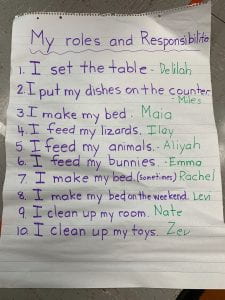 My roles and Responsibilite
1. I set the table - Delilah
2. I put my dishes on the counter
- Miles
3. I make my bed. Maia
4. I feed my lizards. Ilay
5 I feed my animals. - Aliyah
6. I feed my bunnies. - Emma
7. I make my bed. (sometimes) Rachel
8. I make my bed on the weekend. Levi
9 I clean up my room. Nate
10. I clean up my toys. Zev